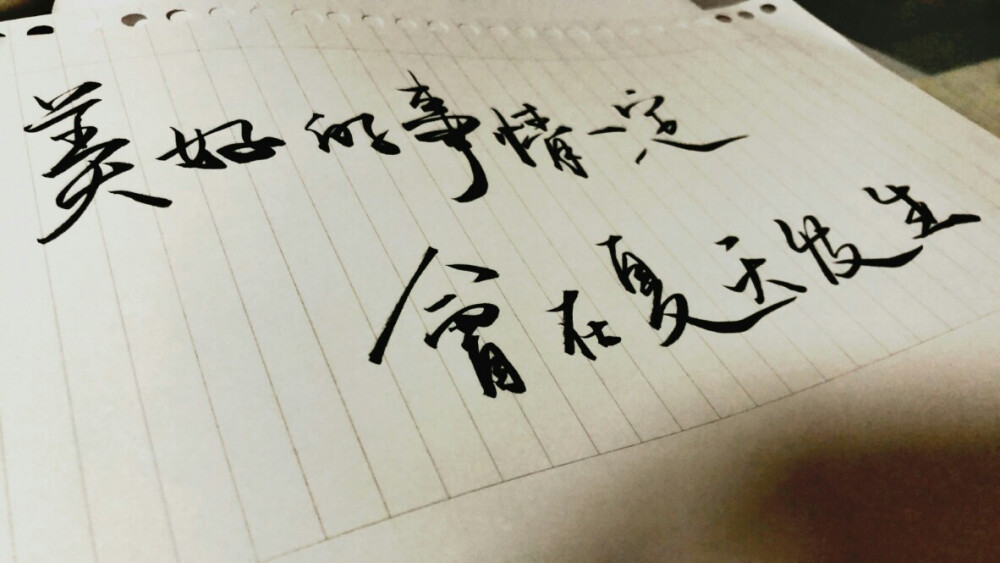 美好的事情一定
會在夏天发生